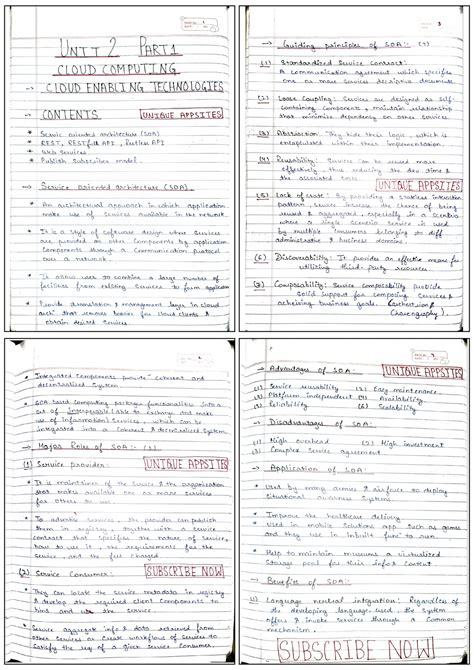 UNIT 2 PART 1
CLOUD COMPUTING
CLOUD ENABLING TECHNOLOGIES
→ CONTENTS UNIQUE APPSITES
• Service oriented architecture (SOA)
• REST, RESTfull API, Restless API
• Web Services
• Publish Subscriber model
→ Service Oriented architecture (SOA)
• An architectural approach in which application
make use of services available in the network
• It is a style of software design where Services
are provided to other Components by application
Components through a Communication Protocol
over a network.
• It allows user to combine a large number of
facilities from existing Services to form application
• Provide translation & management layer in cloud
archi that removes barrier for cloud clients &
obtain desired Services.
• Integrated Components provide coherent and
decentralised System
• SOA based computing packages functionalities into a
set of
use of Information) Services, which can be
integrated into a Coherent & decentralised System
→ Major Roles of SOA:- (2)
(1) Service provider: UNIQUE APPSITES
• It is maintainer of the Service & the organisation
that makes available one or more Services
for others to use
• To advertise services, the provider can publish
them in a registry, together with a service
contract that specifies the nature of service,
how to use it, the requirements for the
service, and the fee charged
(2) Service Consumer: SUBSCRIBE NOW
• They can locate the service metadata in registry
& develop the required client Components to
bind and use the service
• Services aggregate info & data retrieved from
other Services or Create workflows of services to
Satisfy the req of a given Service Consumer.
3
→ Guiding principles of SOA: (7)
(1) Standardized Service Contract:
A communication agreement which specifies
one or more services descriptive documents
(2) Loose Coupling: Services are designed as Self-
containing Components, maintain relationship
that minimise dependency on other services
(3) Abstraction: They hide their logic, which is
encapsulated within their implementation.
(4) Reusability: Services can be reused more
effectively, thus reducing the dev time &
the associated costs UNIQUE APPSITES
(5) Lack of state: By providing a stateless interaction
pattern, service increase the chance of being
reused & aggregated, especially in a scenario
where a single service is used
by multiple consumers belonging to diff
administrative & business domains
(6) Discoverability: It provides an effective means for
utilizing third-party resources
(7) Composability: Service composability provide
Solid support for composing Services &
achieving business goals. (Orchestration &
Choreography)
→ Advantages of SOA:- UNIQUE APPSITES
(1) Service reusability (2) Easy maintenance
(3) Platform independent (4) Availability
(5) Reliability (6) Scalability
→ Disadvantages of SOA:-
(1) High overhead (2) High investment
(3) Complex service agreement
→ Application of SOA:-
• Used by many armies & airforce to deploy
Situational awareness Systems
• Improve the healthcare delivery
• Used in mobile Solutions app such as games
and they use in inbuilt func to run
• Help to maintain museums a virtualized
Storage pool for their info & Content
→ Benefits of SOA:-
(1) Language neutral integration: Regardless of
the developing language used, the system
offers & invoke Services through a Common
mechanism.
SUBSCRIBE NOW